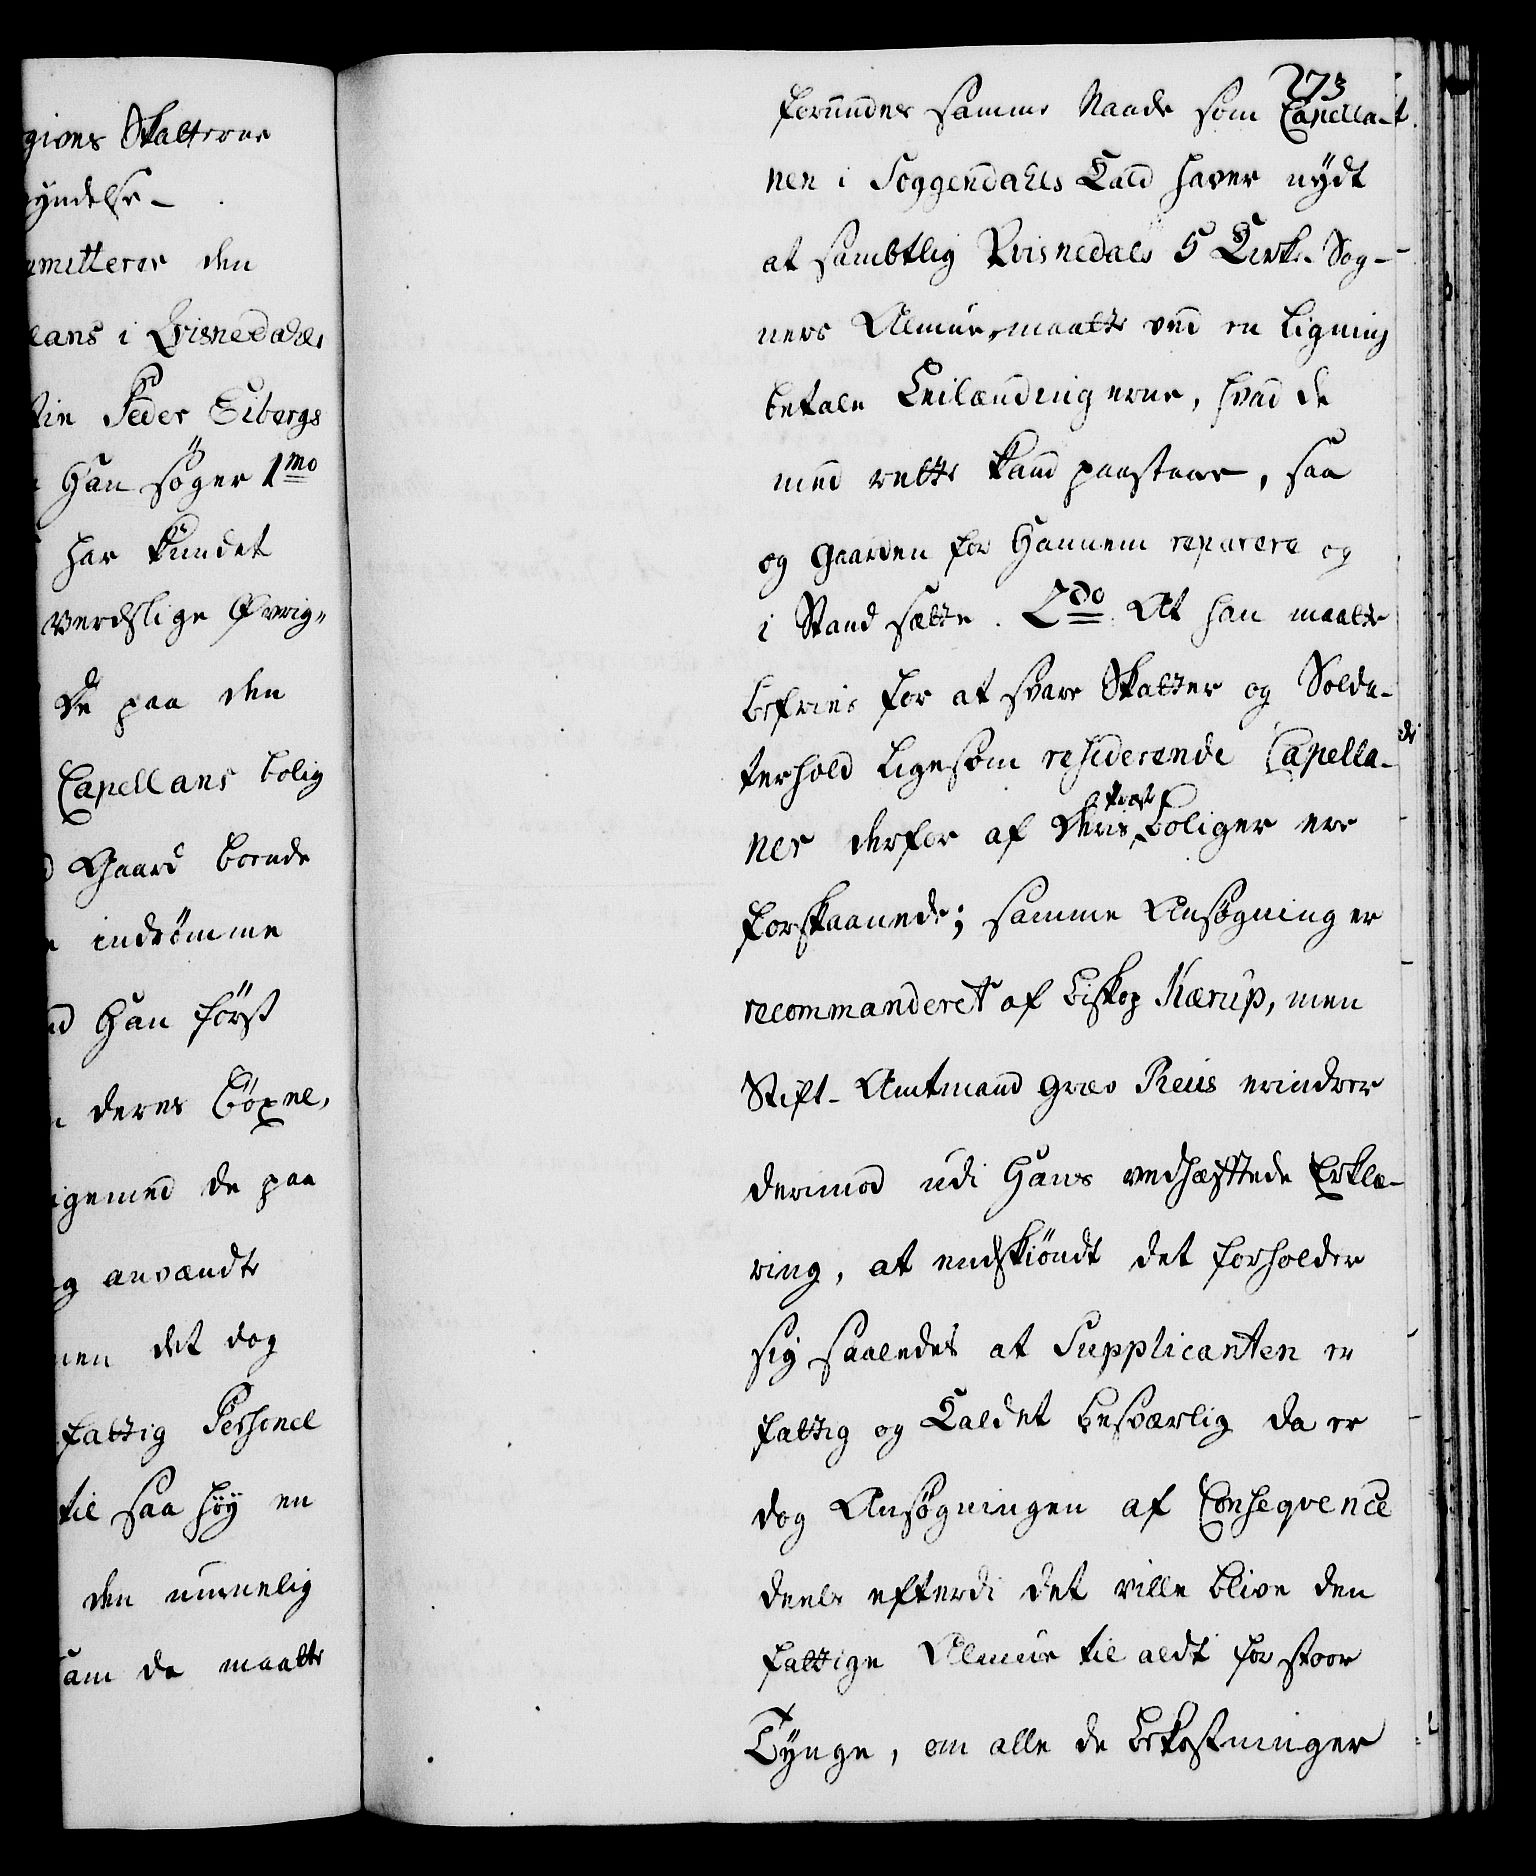 gives Skatterne
yndelse-
mitterer den
lans i Qvisnedahls
Peder Eibergs
Han søger 1mo
har kundet
verdslige Øvrig„
De paa den
Capellans bolig
Gaard boende
indrömme
Han først
deres
igemed de paa
g anvændte
men det dog
fattig Personel
til saa høy en
den
am de maatte
273
forundes samme Naade som Capella-
nen i Soggendahls Kald haver nydt
at sambtlig Qvisnedals 5 Kirke-Sog-
ners Almue, maatte ved en Ligning
betale Leilændingerne, hvad de
med rette kand paastaae, saa
og Gaarden for Hannem reparere og
i Stand sætte. 2do At han maatte
befries for at svare Skatter og Solda-
terhold ligesom residerende Capella-
ner derfor af Deris Præste Boliger ere
forskaanede; samme Ansøgning er
recommanderet af Biskop Kærup, men
Stift-Amtmand Græv Reus erindrer
derimod udi Hans vedhæfttede Erklæ-
ring, at endskiöndt det forholder
sig saaledes at Supplicanten er
fattig og Kaldet besværlig da er
dog Ansøgningen af Conseqvence
deels efterdi det ville blive den
fattige Almue til aldt for stoor
Tynge, om alle de bekostninger